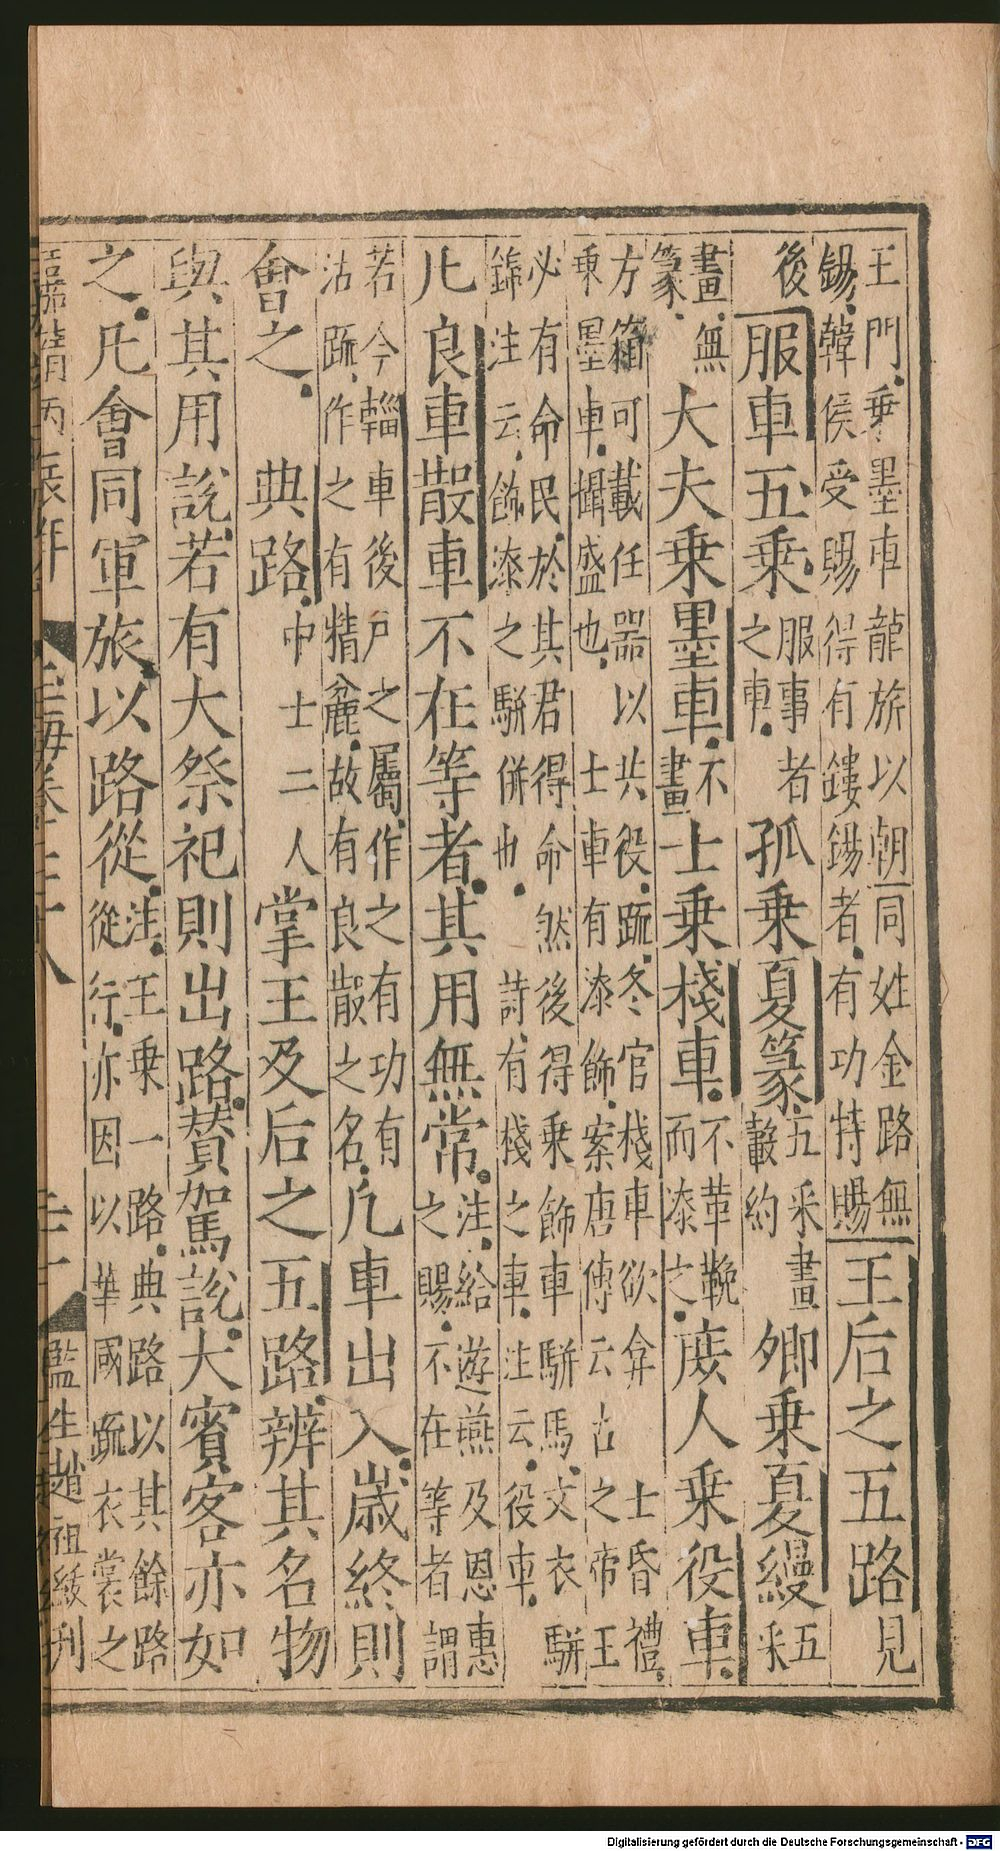 王門乗墨車龍旂以朝同姓金路無
錫韓侯受賜得有鏤錫者有功特賜
王后之五路見
後服車五乗服事者之車孤乗夏篆五采畫轂約卿乗夏縵五采
畫篆無大夫乗墨車不畫士乗棧車不革鞔而漆之庶人乗役車
方箱可載任器以共役疏冬官棧車欲弇士昏禮
乗墨車攝盛也士車有漆飾案唐傳云古之帝王
必有命民於其君得命然後得乗飾車駢馬文衣駢
錦注云飾漆之駢併也詩有棧之車注云役車
凡良車散車不在等者其用無常注給遊燕及恩惠之賜不在等者謂
若今輜車後戸之屬作之有功有沽疏作之有精麄故有良散之名凡車出入歲終則
會之典路中士二人掌王及后之五路辨其名物
與其用說若有大祭祀則出路賛駕說大賓客亦如
之凡會同軍旅以路從注王乗一路典路以其餘路從行亦因以華國疏衣裳之
嘉靖丙辰年 玉海卷七十八 監生趙祖綬刊
Digitalisierung gefördert durch die Deutsche Forschungsgemeinschaft - DFG